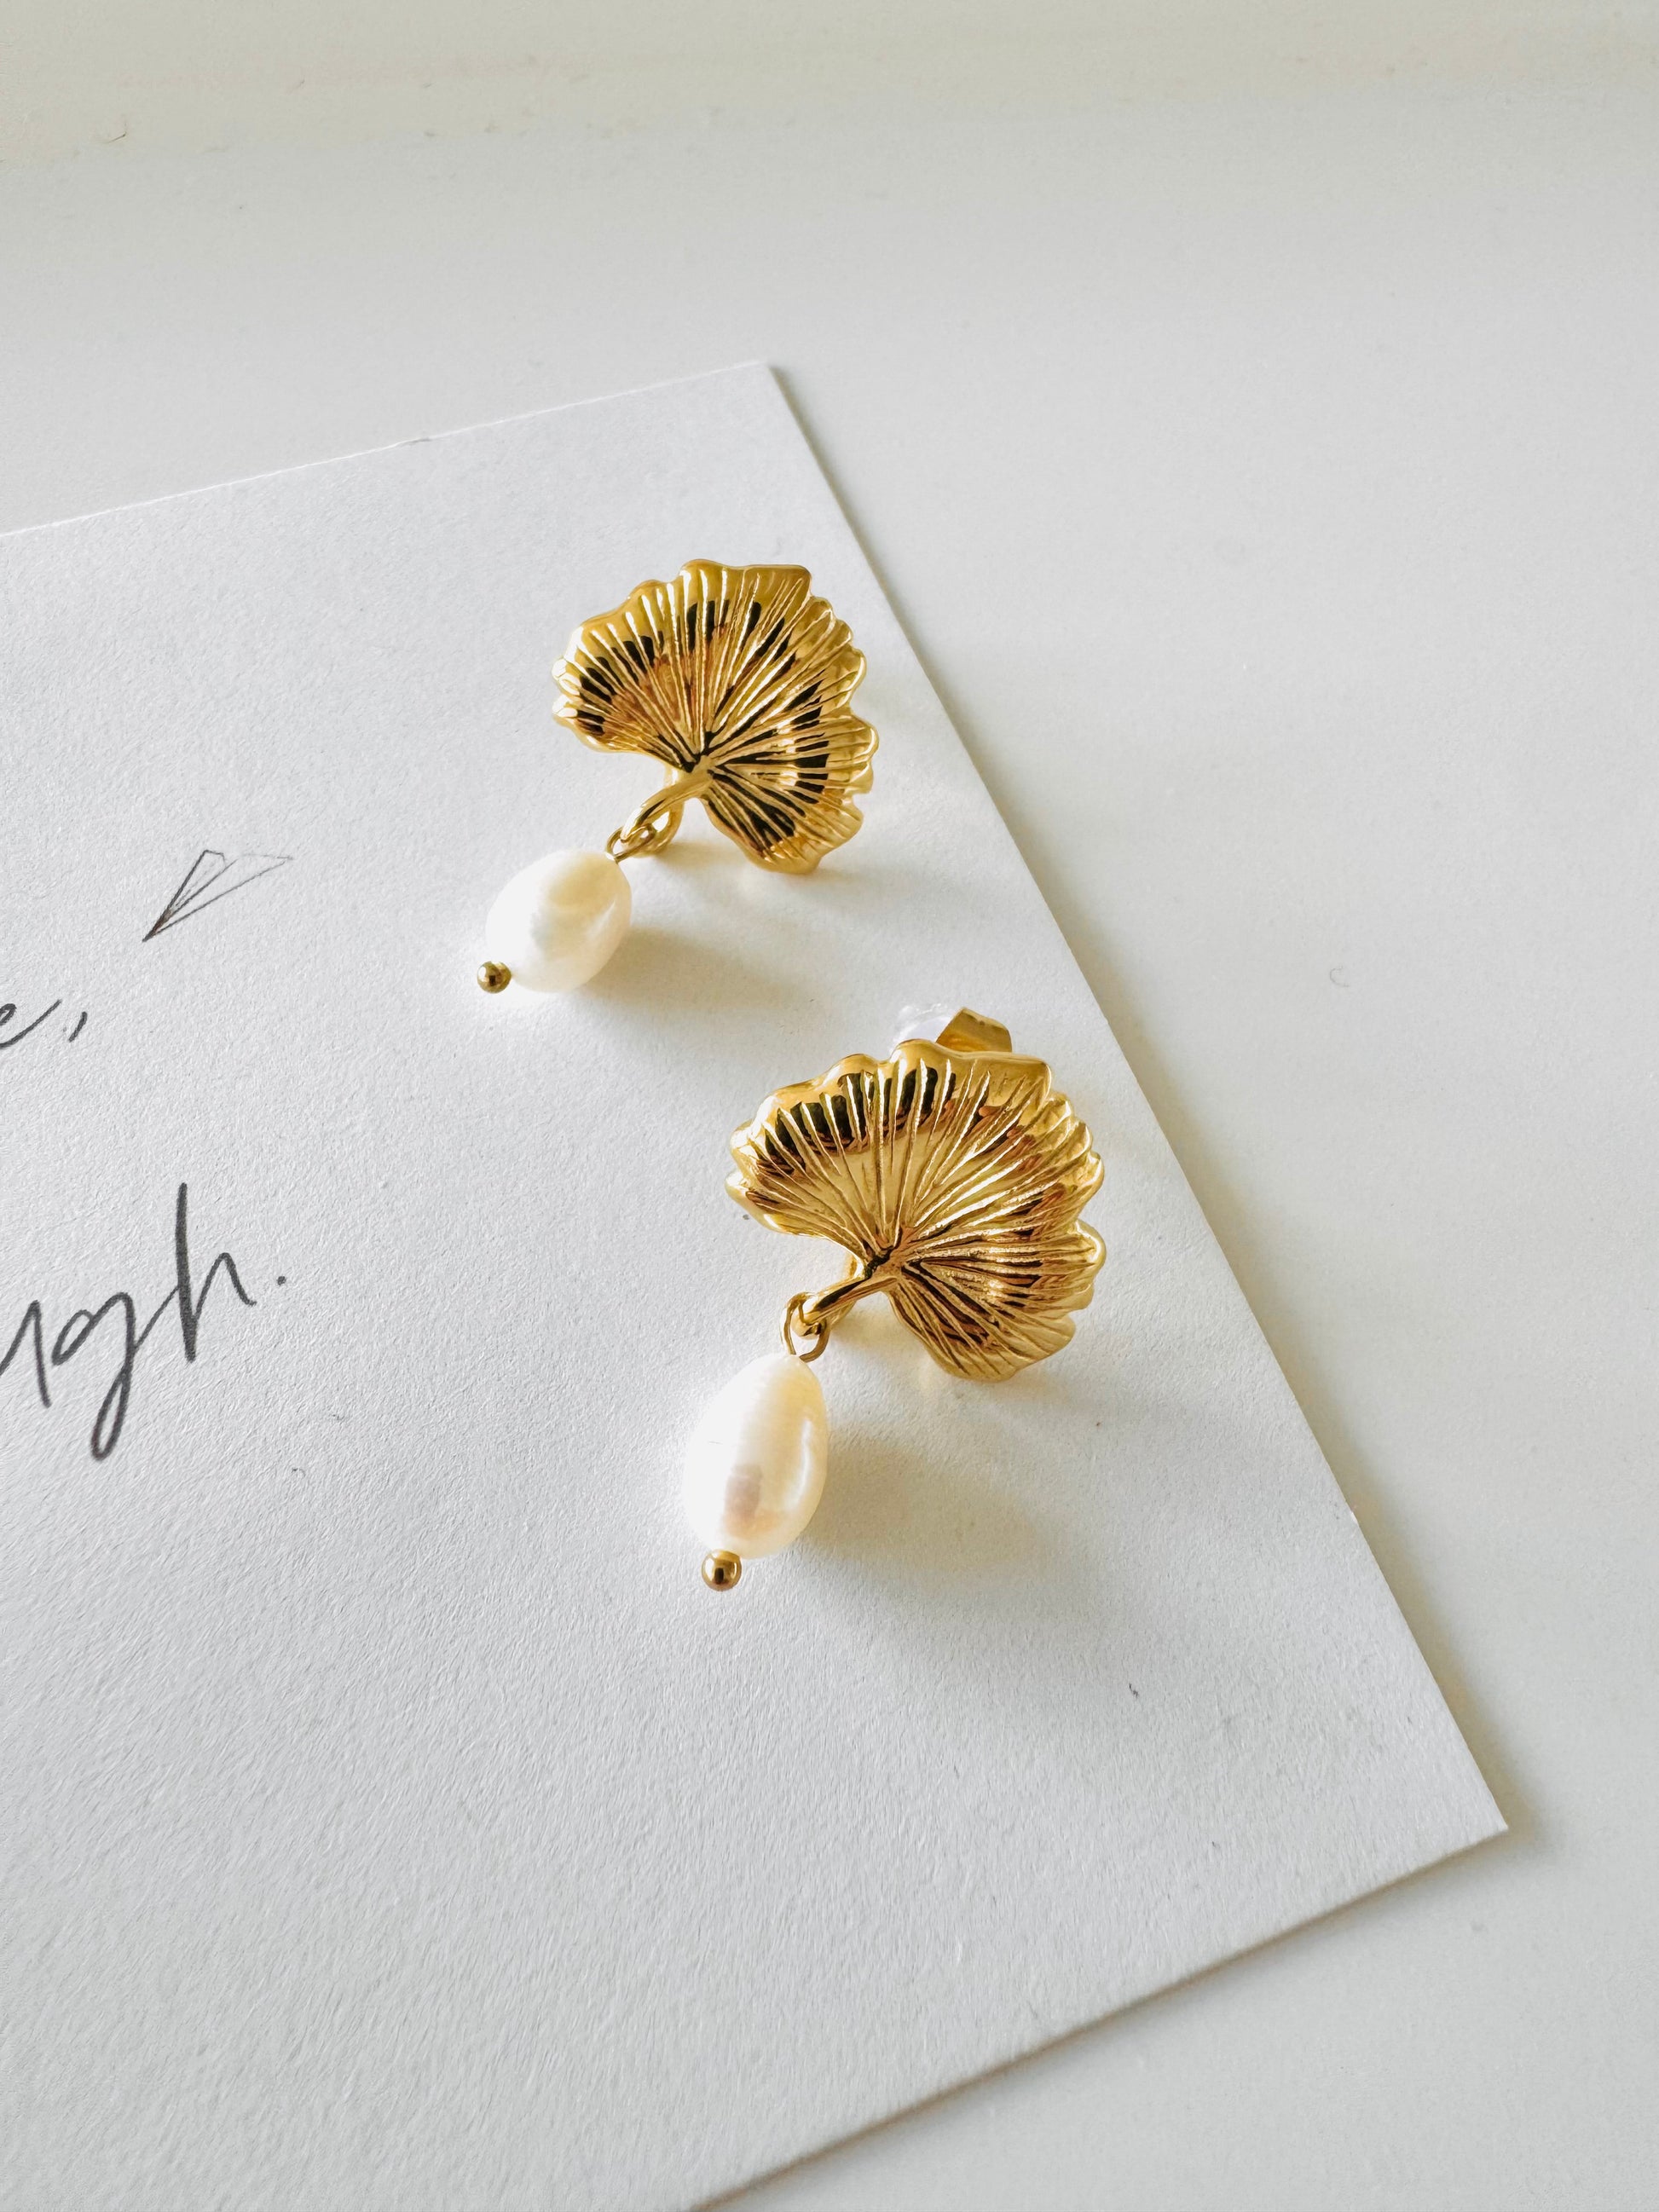 e,
ugh.